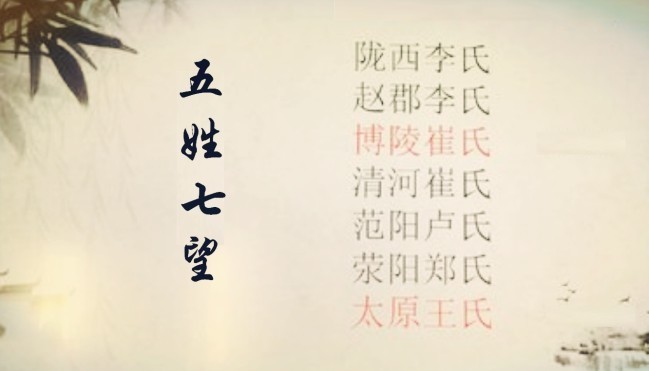 五姓七望
陇西李氏
赵郡李氏
博陵崔氏
清河崔氏
范阳卢氏
荥阳郑氏
太原王氏